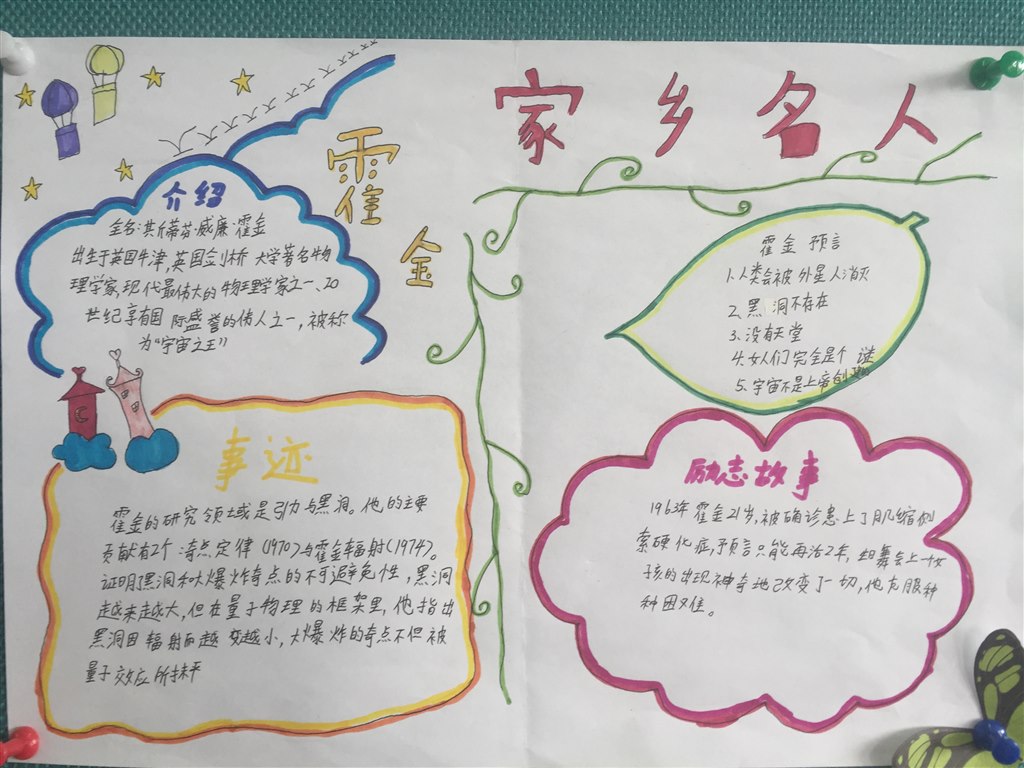 家乡名人
霍金
介绍
全名:斯蒂芬·威廉·霍金
出生于英国牛津,英国剑桥大学著名物
理学家,现代最伟大的物理学家之一、20
世纪享有国际盛誉的伟人之一,被称
为“宇宙之王”
事迹
霍金的研究领域是引力与黑洞。他的主要
贡献有2个奇点定律(1970)与霍金辐射(1974)。
证明了黑洞和大爆炸奇点的不可避免性,黑洞
越来越大,但在量子物理的框架里,他指出
黑洞因辐射而越变越小,大爆炸的奇点不但被
量子效应所抹平
霍金预言
1.人类会被外星人消灭
2.黑洞不存在
3.没有天堂
4.女人们完全是个谜
5.宇宙不是上帝创
励志故事
1963年霍金21岁,被确诊患上了肌缩侧
索硬化症,预言只能再活2年,但舞会上一女
孩的出现神奇地改变了一切,他克服种
种困难。